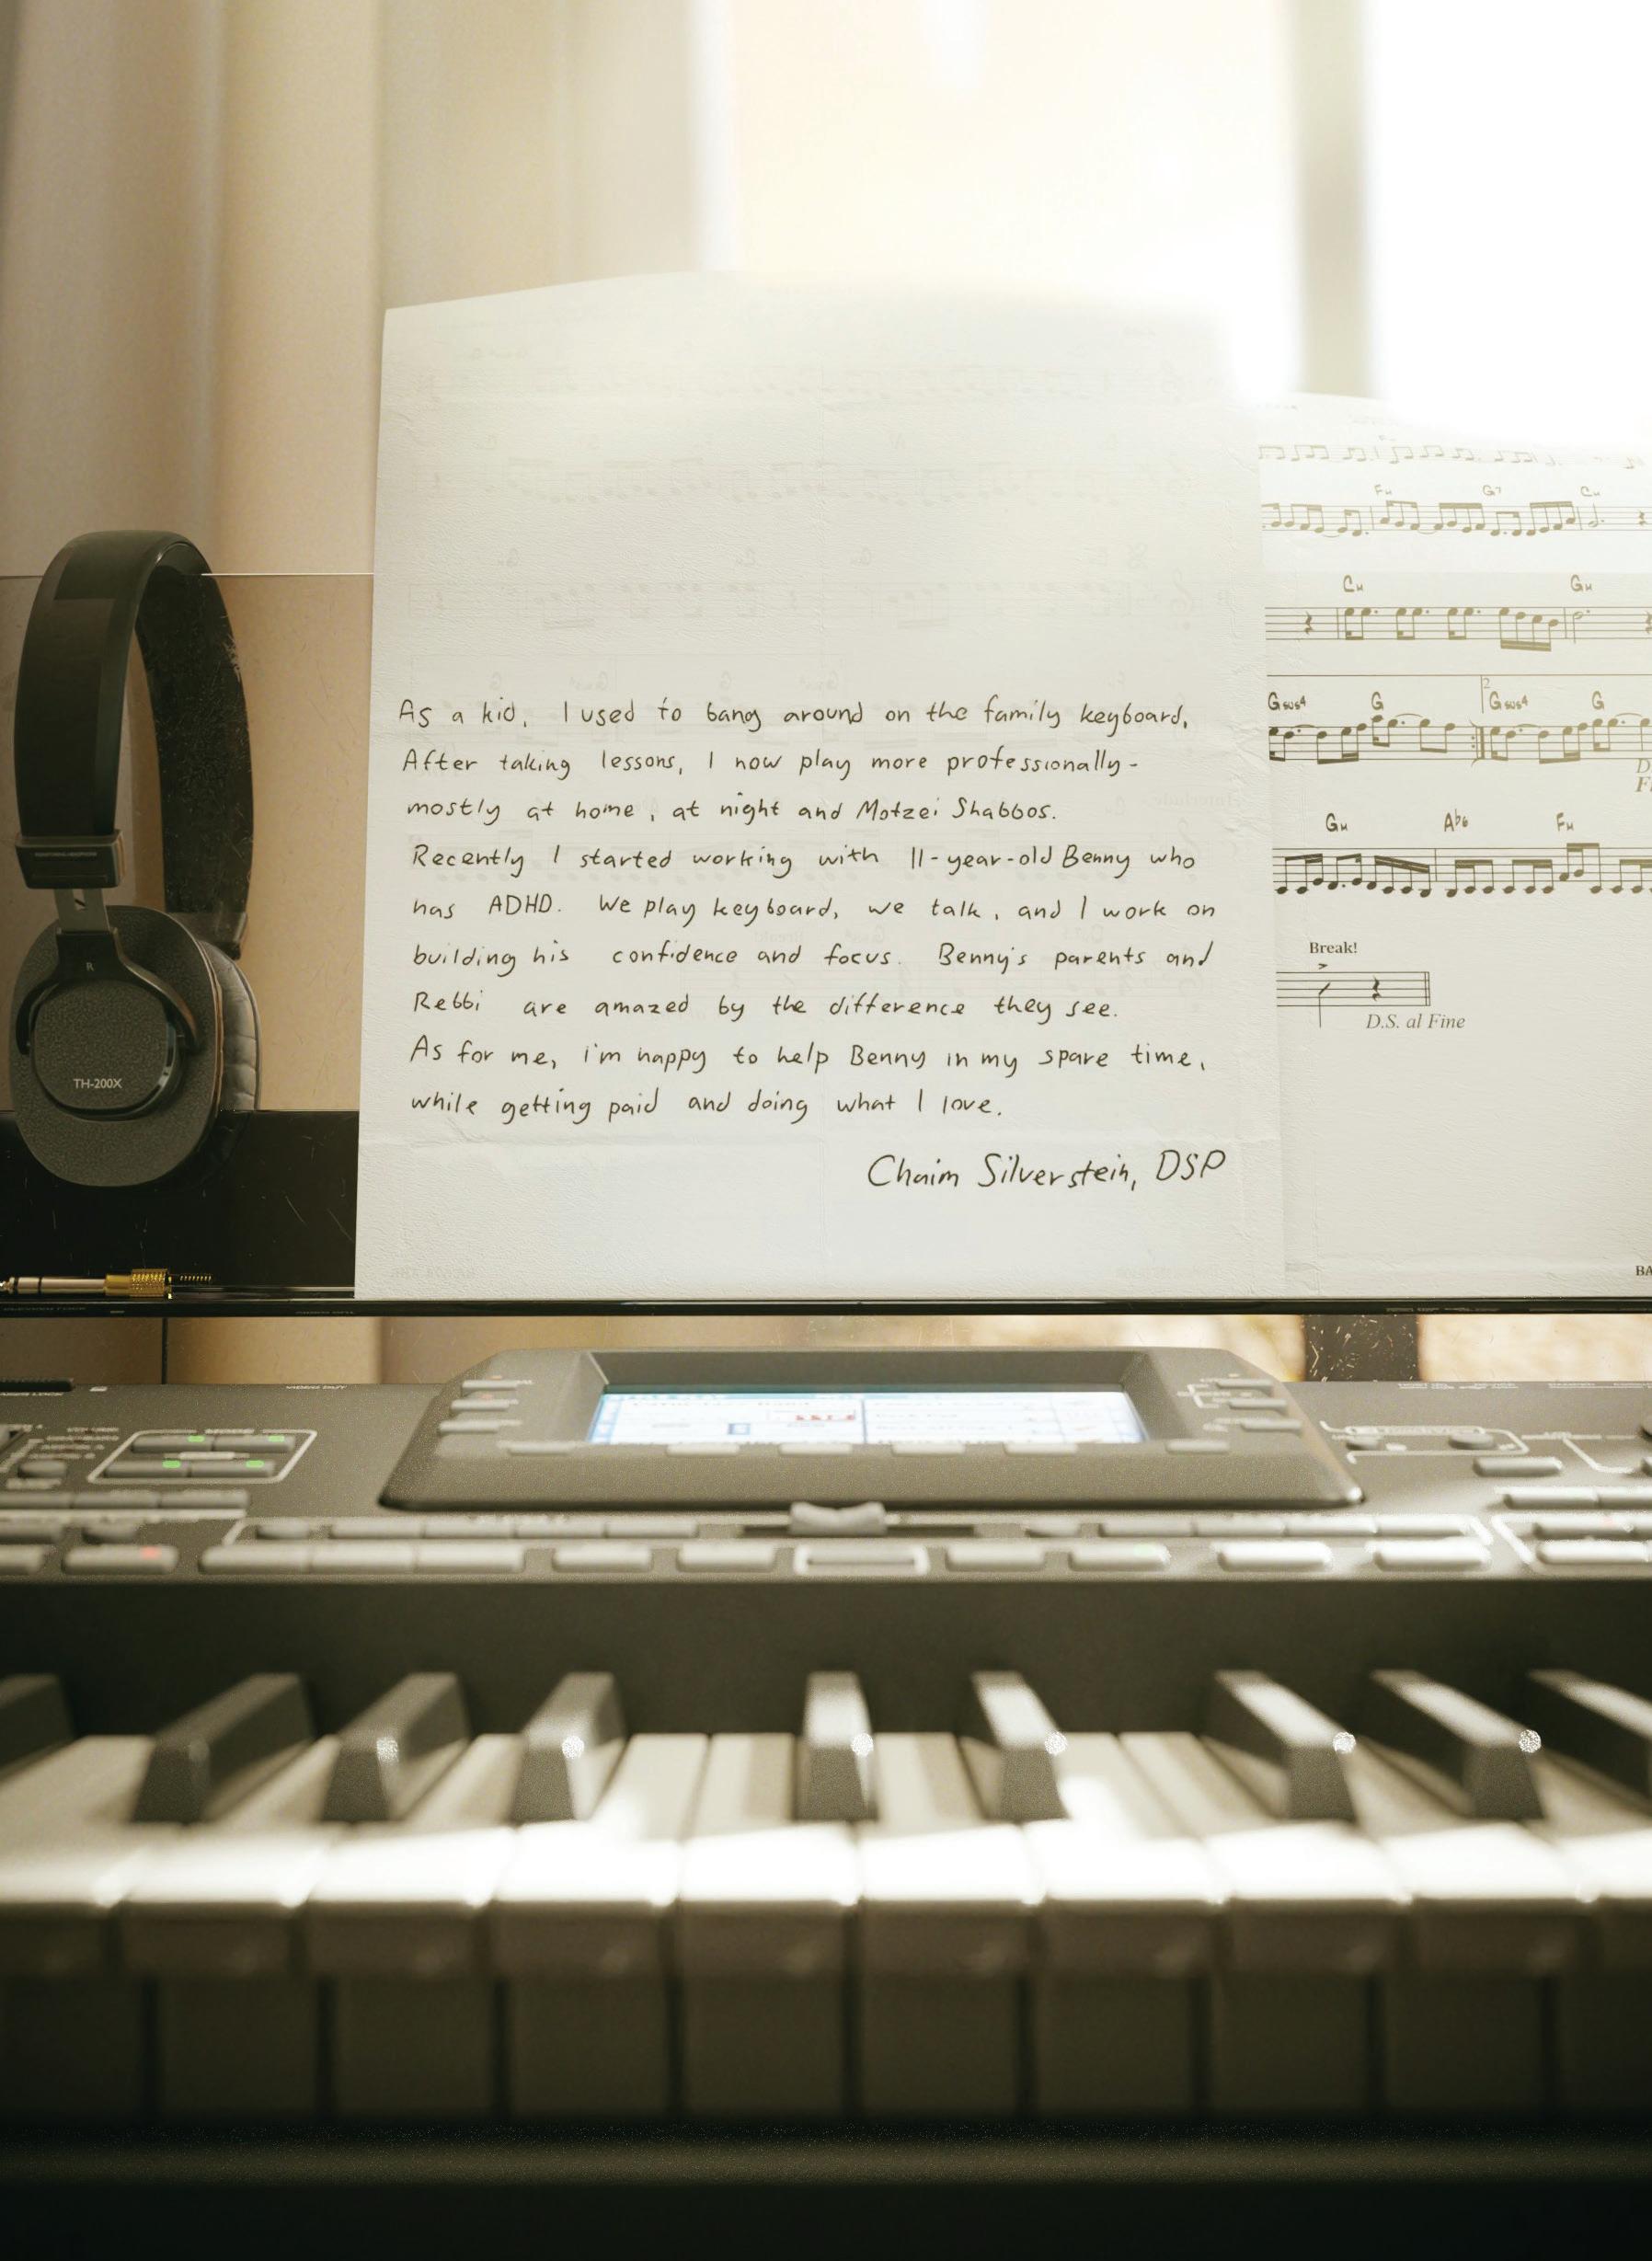 As a kid, I used to bang around on the family keyboard,
After taking lessons, I now play more professionally-
mostly at home, at night and Motzei Shabbos.
Recently I started working with 11-year-old Benny who
has ADHD. We play keyboard, we talk, and I work on
building his confidence and focus. Benny's parents and
Rebbi are amazed by the difference they see.
As for me, i'm happy to help Benny in my spare time,
while getting paid and doing what I love.
Chaim Silverstein, DSP
R
TH-200X
FM G7 CM
CM GM
Gsus4 G 2 Gsus4 G
GM Ab6 FM
Break!
D.S. al Fine
BA